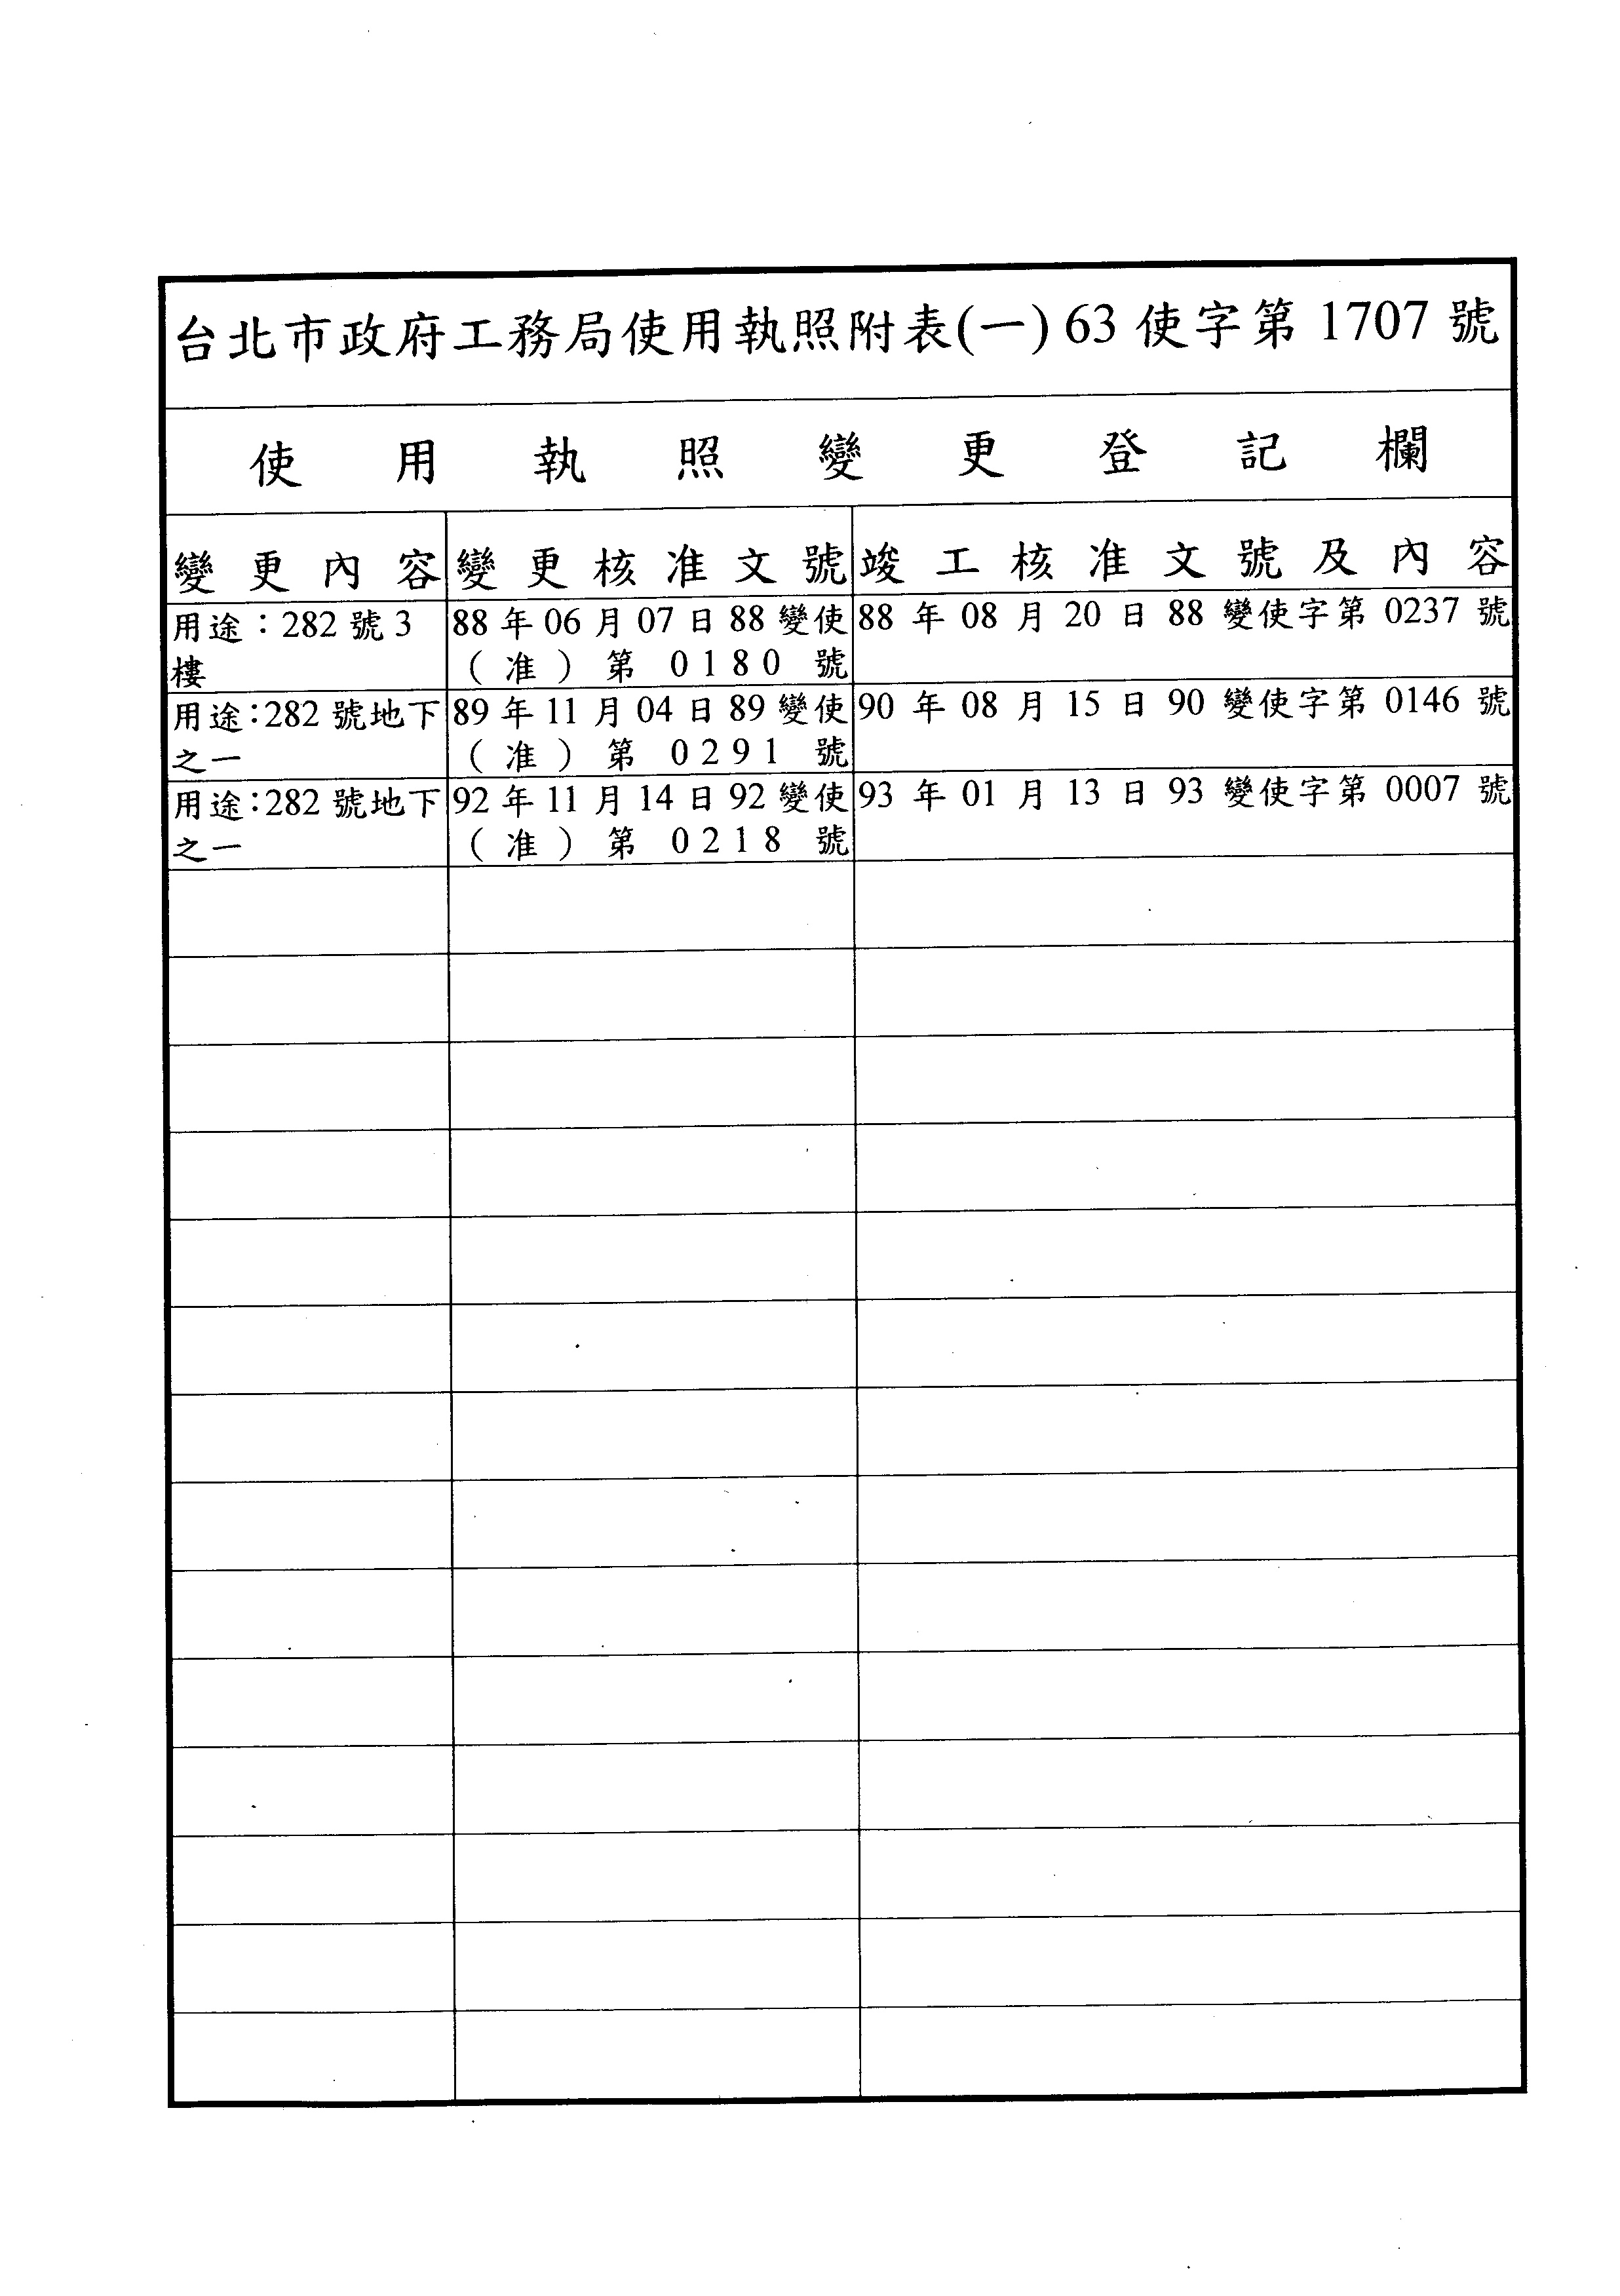 台北市政府工務局使用執照附表(一) 63 使字第 1707 號
使用執照變更登記欄
變更內容 變更核准文號 竣工核准文號及內容
用途：282 號 3
樓
88 年 06 月 07 日 88 變使
（准）第 0180 號
88 年 08 月 20 日 88 變使字第 0237 號
用途：282 號地下
之一
89 年 11 月 04 日 89 變使
（准）第 0291 號
90 年 08 月 15 日 90 變使字第 0146 號
用途：282 號地下
之一
92 年 11 月 14 日 92 變使
（准）第 0218 號
93 年 01 月 13 日 93 變使字第 0007 號